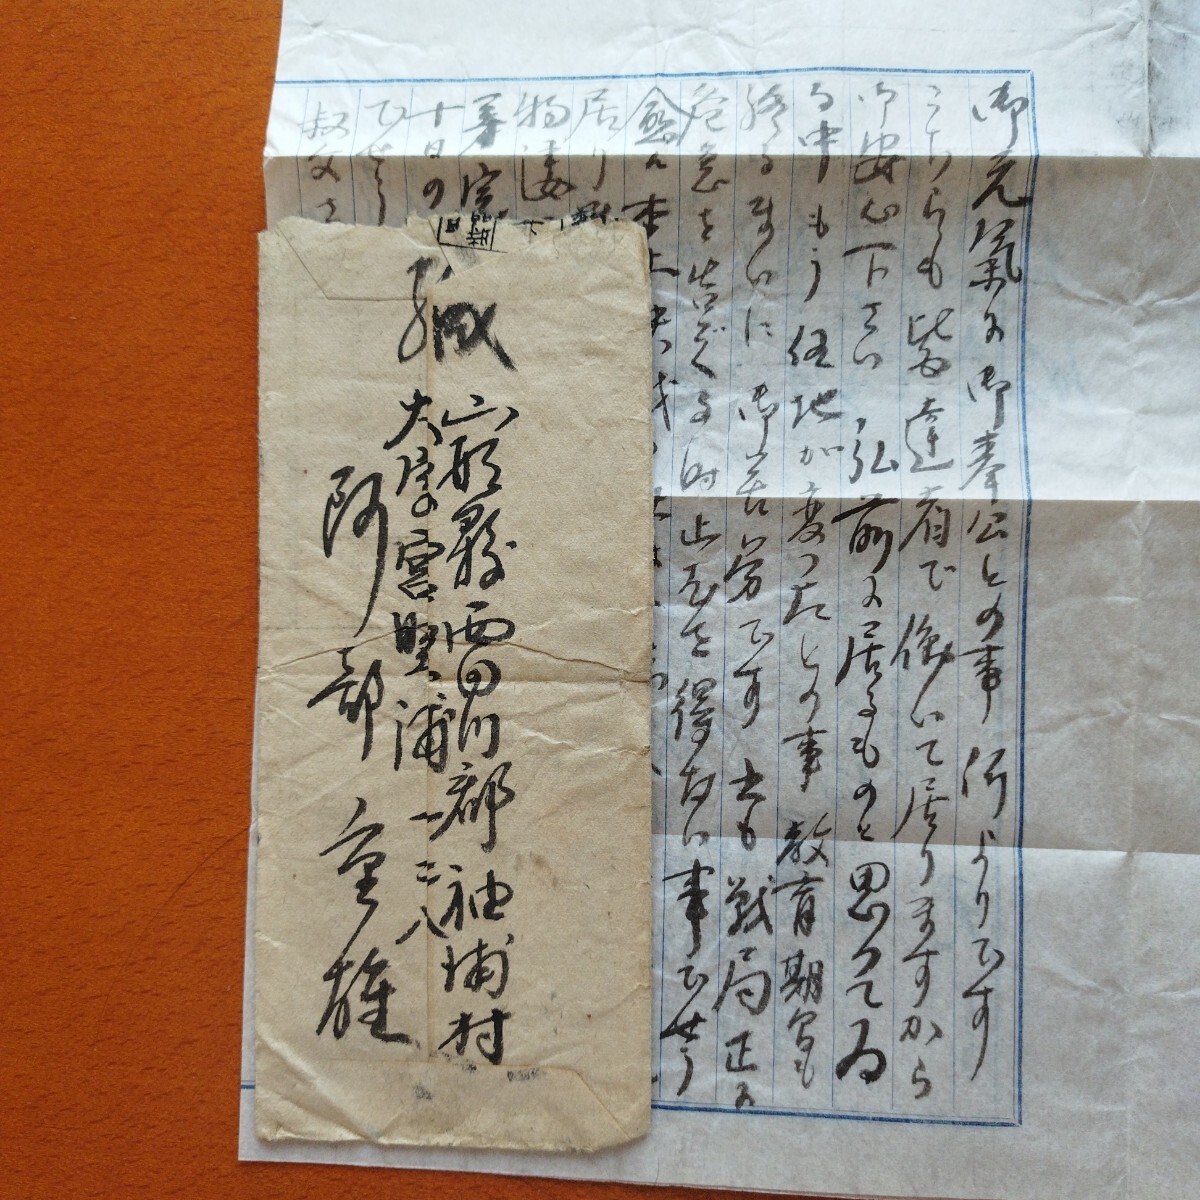 御元氣に御奉公との事 何よりです
こちらも皆達者で働いて居りますから
御安心下さい 弘前に居るものと思つてゐ
る中もう任地が変つたとの事 教育期間も
終るまいに御苦労です 尤も戦局正に
危急を告ぐる時止むを得ない事でせう
愈々本土決戦
居り
物凄
十日の
ひどう
叔父さ
緘
山形縣西田川郡袖浦村
大字宮野浦一二八
阿部重雄